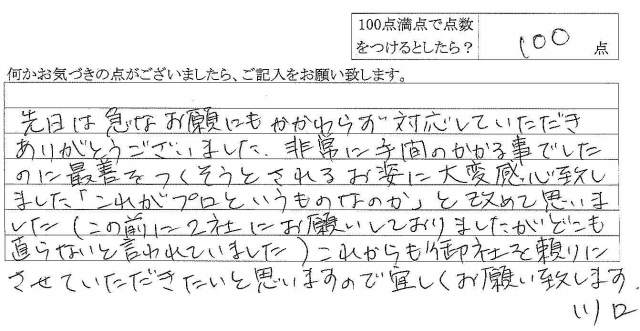 100点満点で点数
をつけるとしたら？
100 点
何かお気づきの点がございましたら、ご記入をお願い致します。
先日は急なお願にもかかわらず対応していただき
ありがとうございました。非常に手間のかかる事でした
のに最善をつくそうとされるお姿に大変感心致し
ました「これがプロというものなのか」と改めて思いま
した（この前に2社にお願いしておりましたがどこも
直らないと言われていました）これからも御社を頼りに
させていただきたいと思いますので宜しくお願い致します。
川口